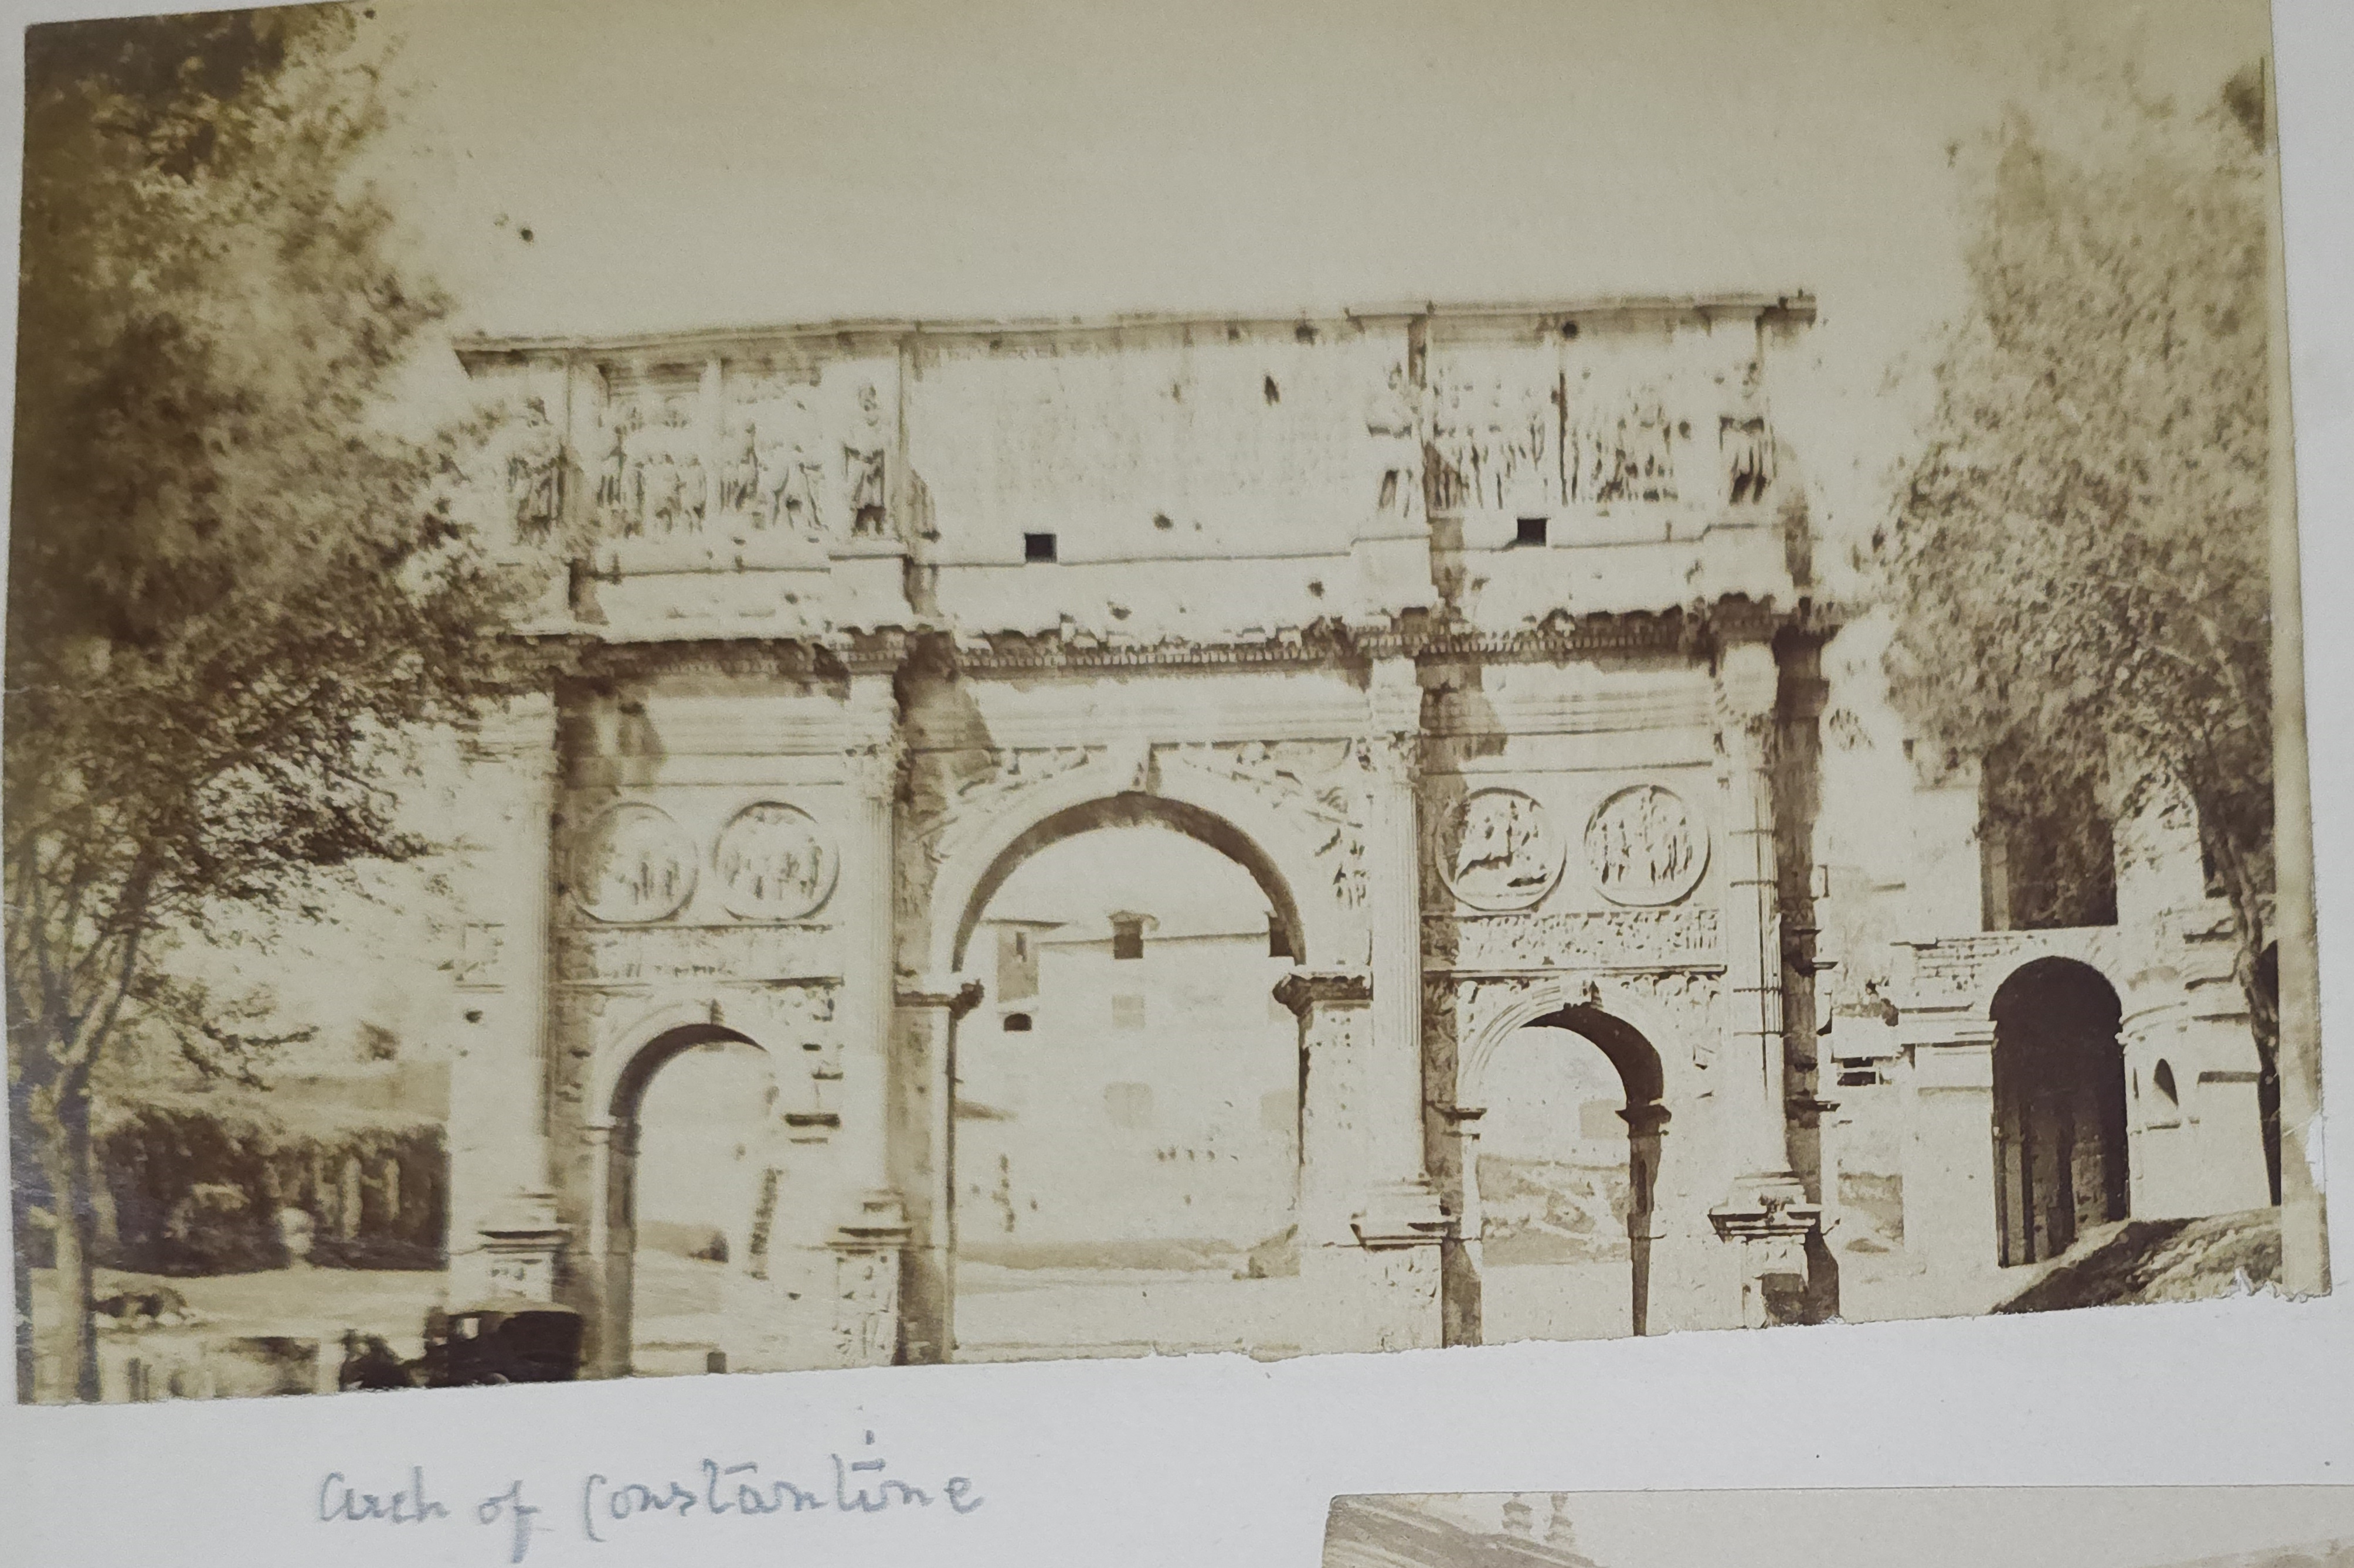 Arch of Constantine